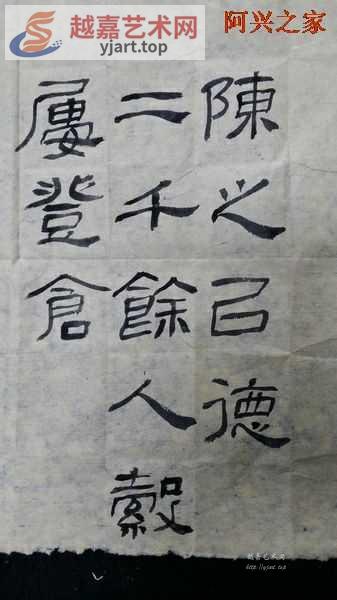 越嘉艺术网
yjart.top
阿兴之家
陳之㠯德
二千餘人穀
屢登倉
越嘉艺术网
http://yjart.top